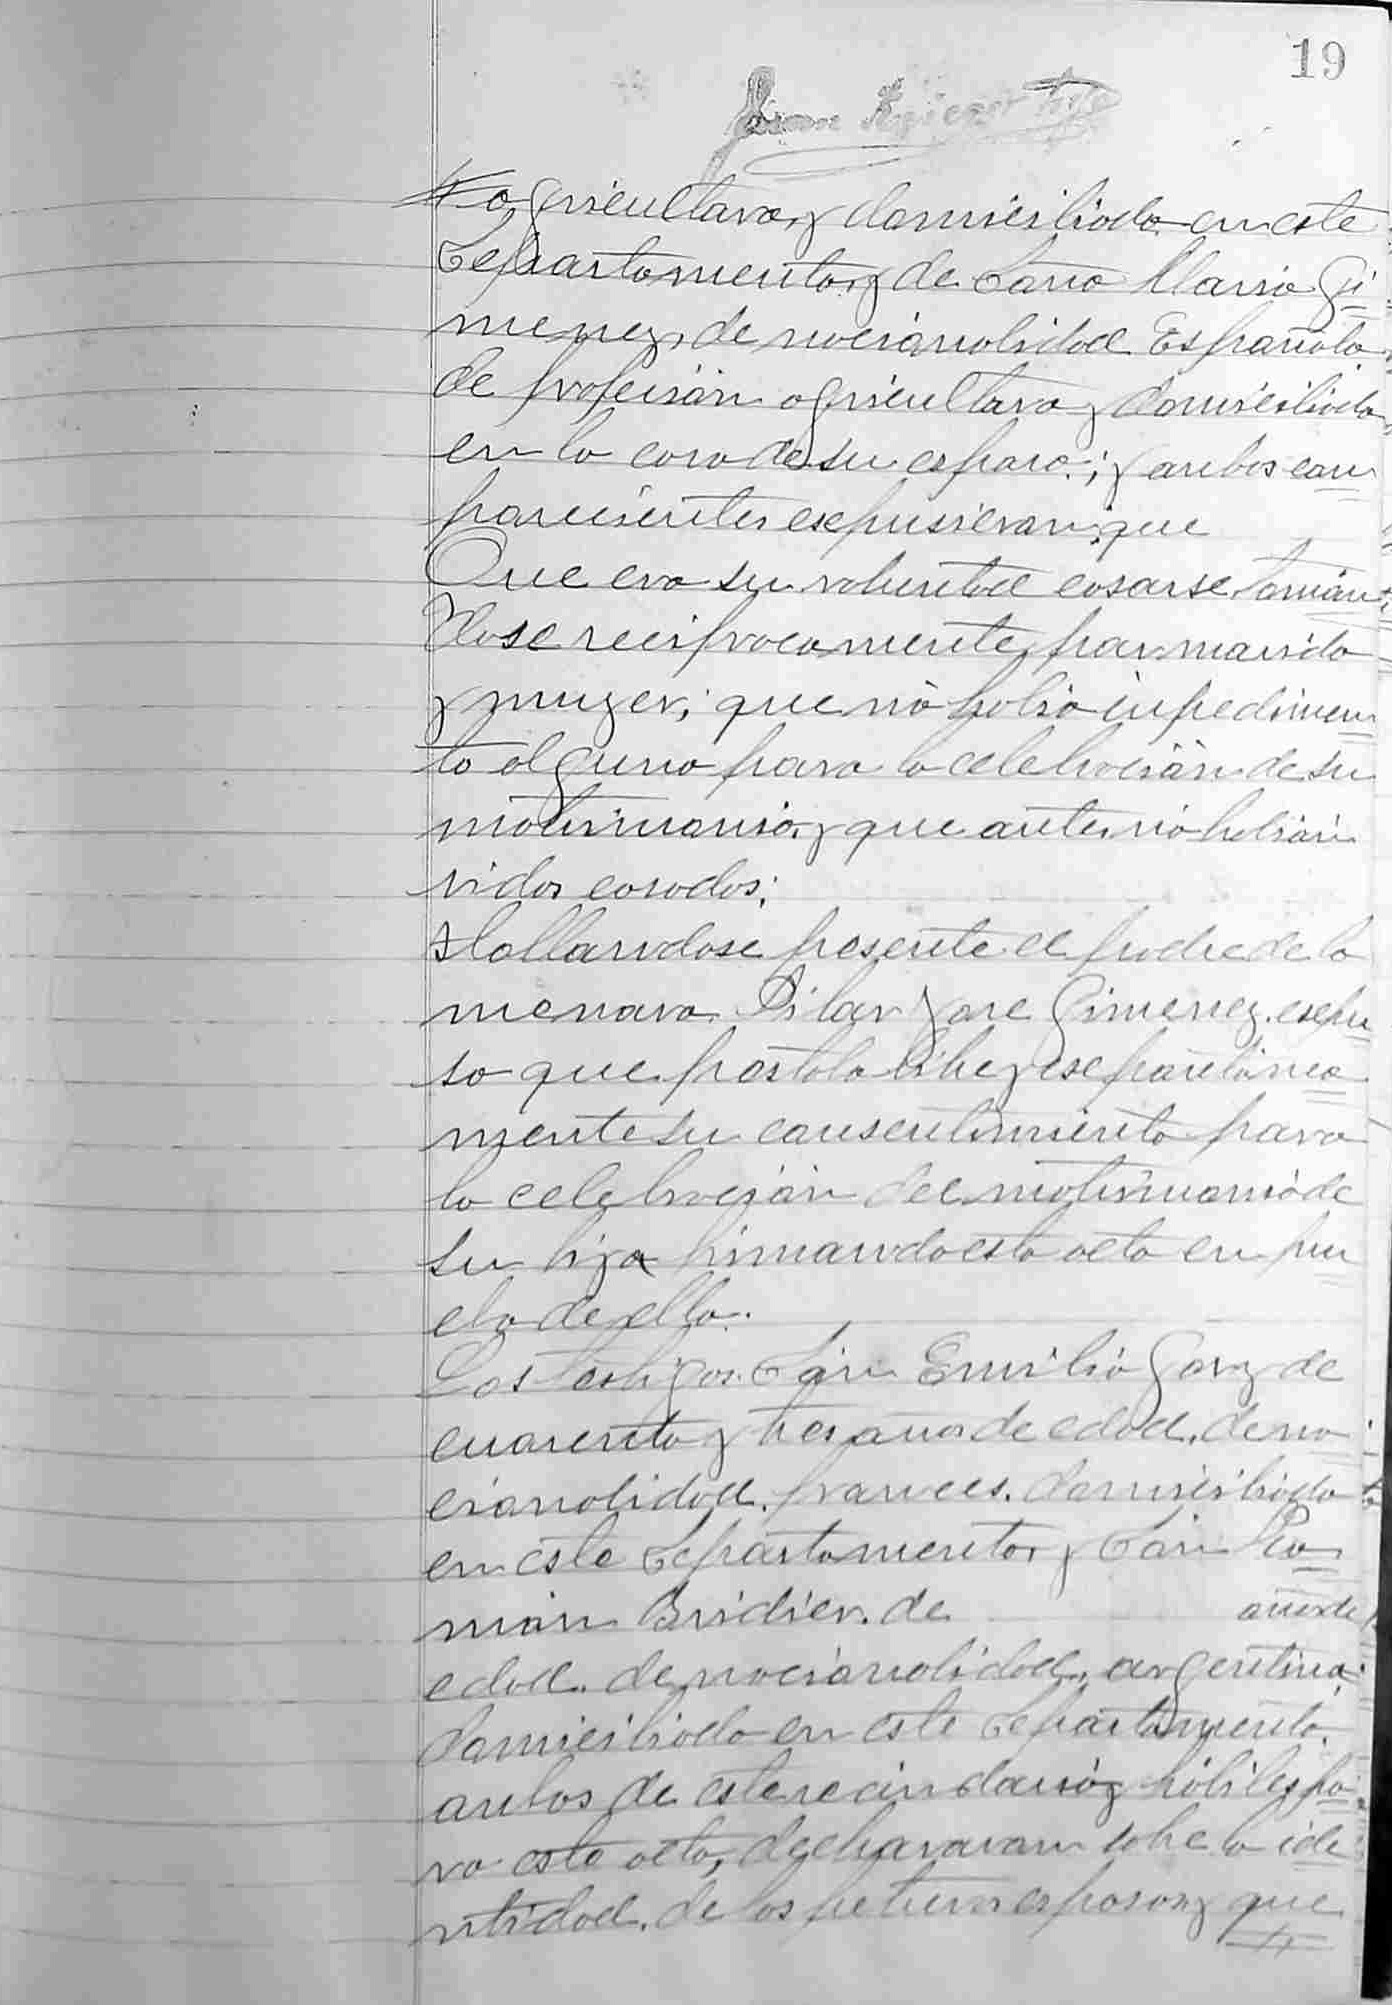 19
agricultora, y domiciliado en este
Departamento, y de Doña Maria Gi
menez, de nacionalidad Española,
de profesión agricultora y domiciliada
en la casa de su esposo; y ambos com
parecientes expusieron; que
Que era su voluntad casarse, tomán
dose reciprocamente, por marido
y muger; que nó habia impedimen
to alguno para la celebración de su
matrimonio, y que antes nó habián
sidos casados;
Hallandose presente el padre de la
menora Pilar José Gimenez. expu
so que prestaba libre y espontánea
mente su consentimiento para
la celebración del matrimonio de
su hija firmando esta acta en pru
eba de ello.
Los testigos. Dón Emilio Gary de
cuarenta y tres años de edad, de na
cionalidad, frances. domiciliado
en este Departamento, y Dón Ro
mán Bridier. de años de
edad. de nacionalidad, argentina;
domiciliado en este Departamento.
ambos de este vecindario, y hábiles pa
ra este acto, declararon sobre la ide
ntidad. de los futuros esposos, y que